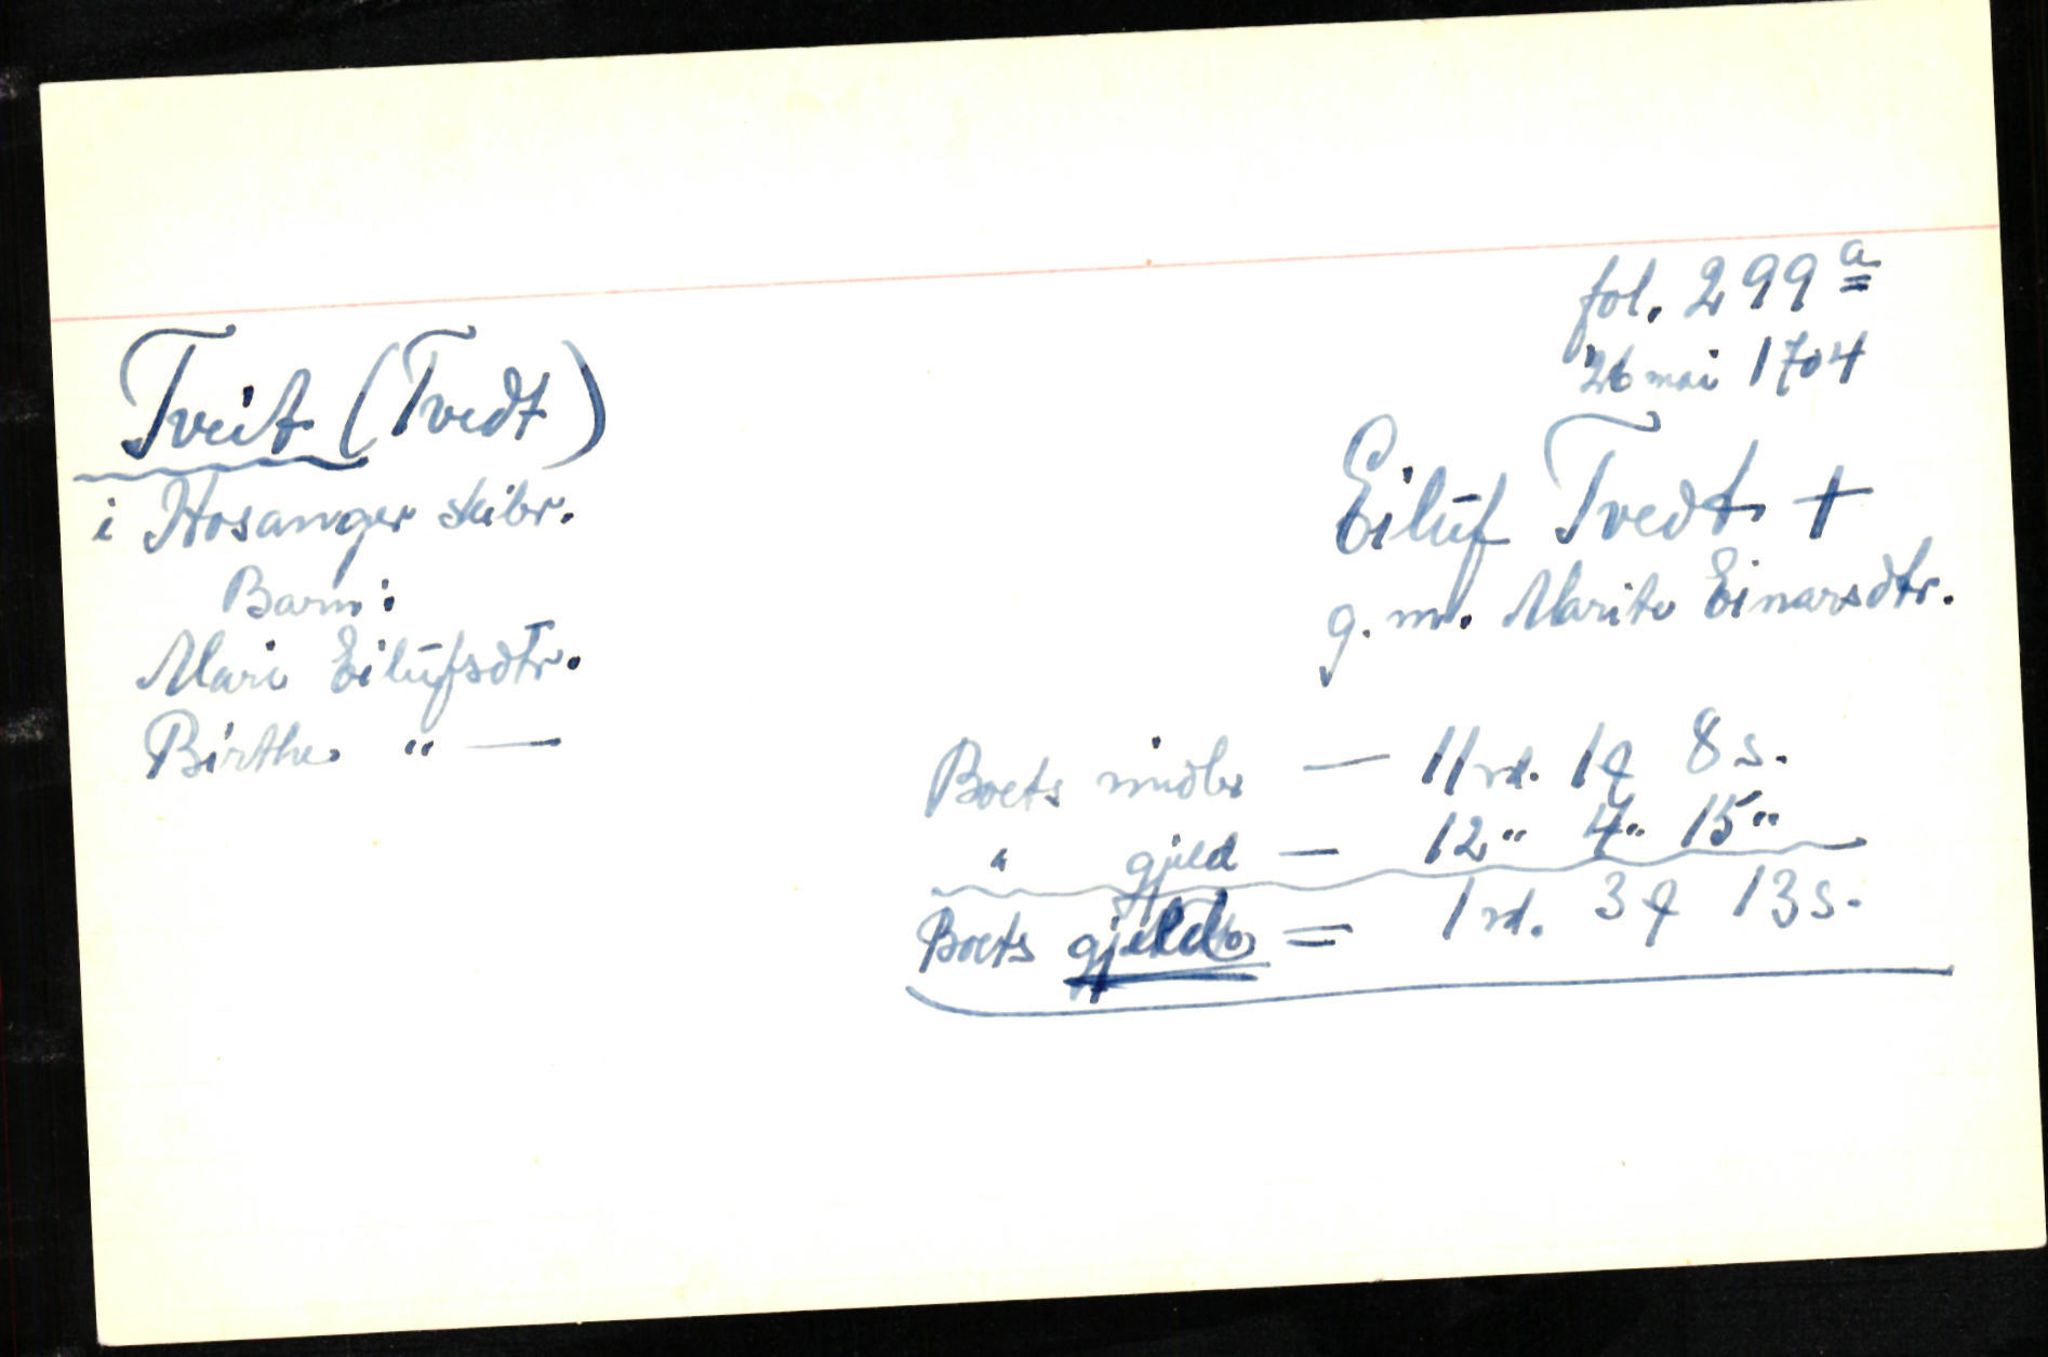 fol. 299 a
26 mai 1704
Tveit (Tvedt)
i Hosanger skibr.
Eiluf Tvedt +
g. m. Marite Einarsdtr.
Barn:
Mari Eilufsdtr.
Birthe " —
Boets midler — 11 rd. 1 q 8 s.
" gjeld — 12 " 4 " 15 "
Boets gjeld = 1 rd. 3 q 13 s.